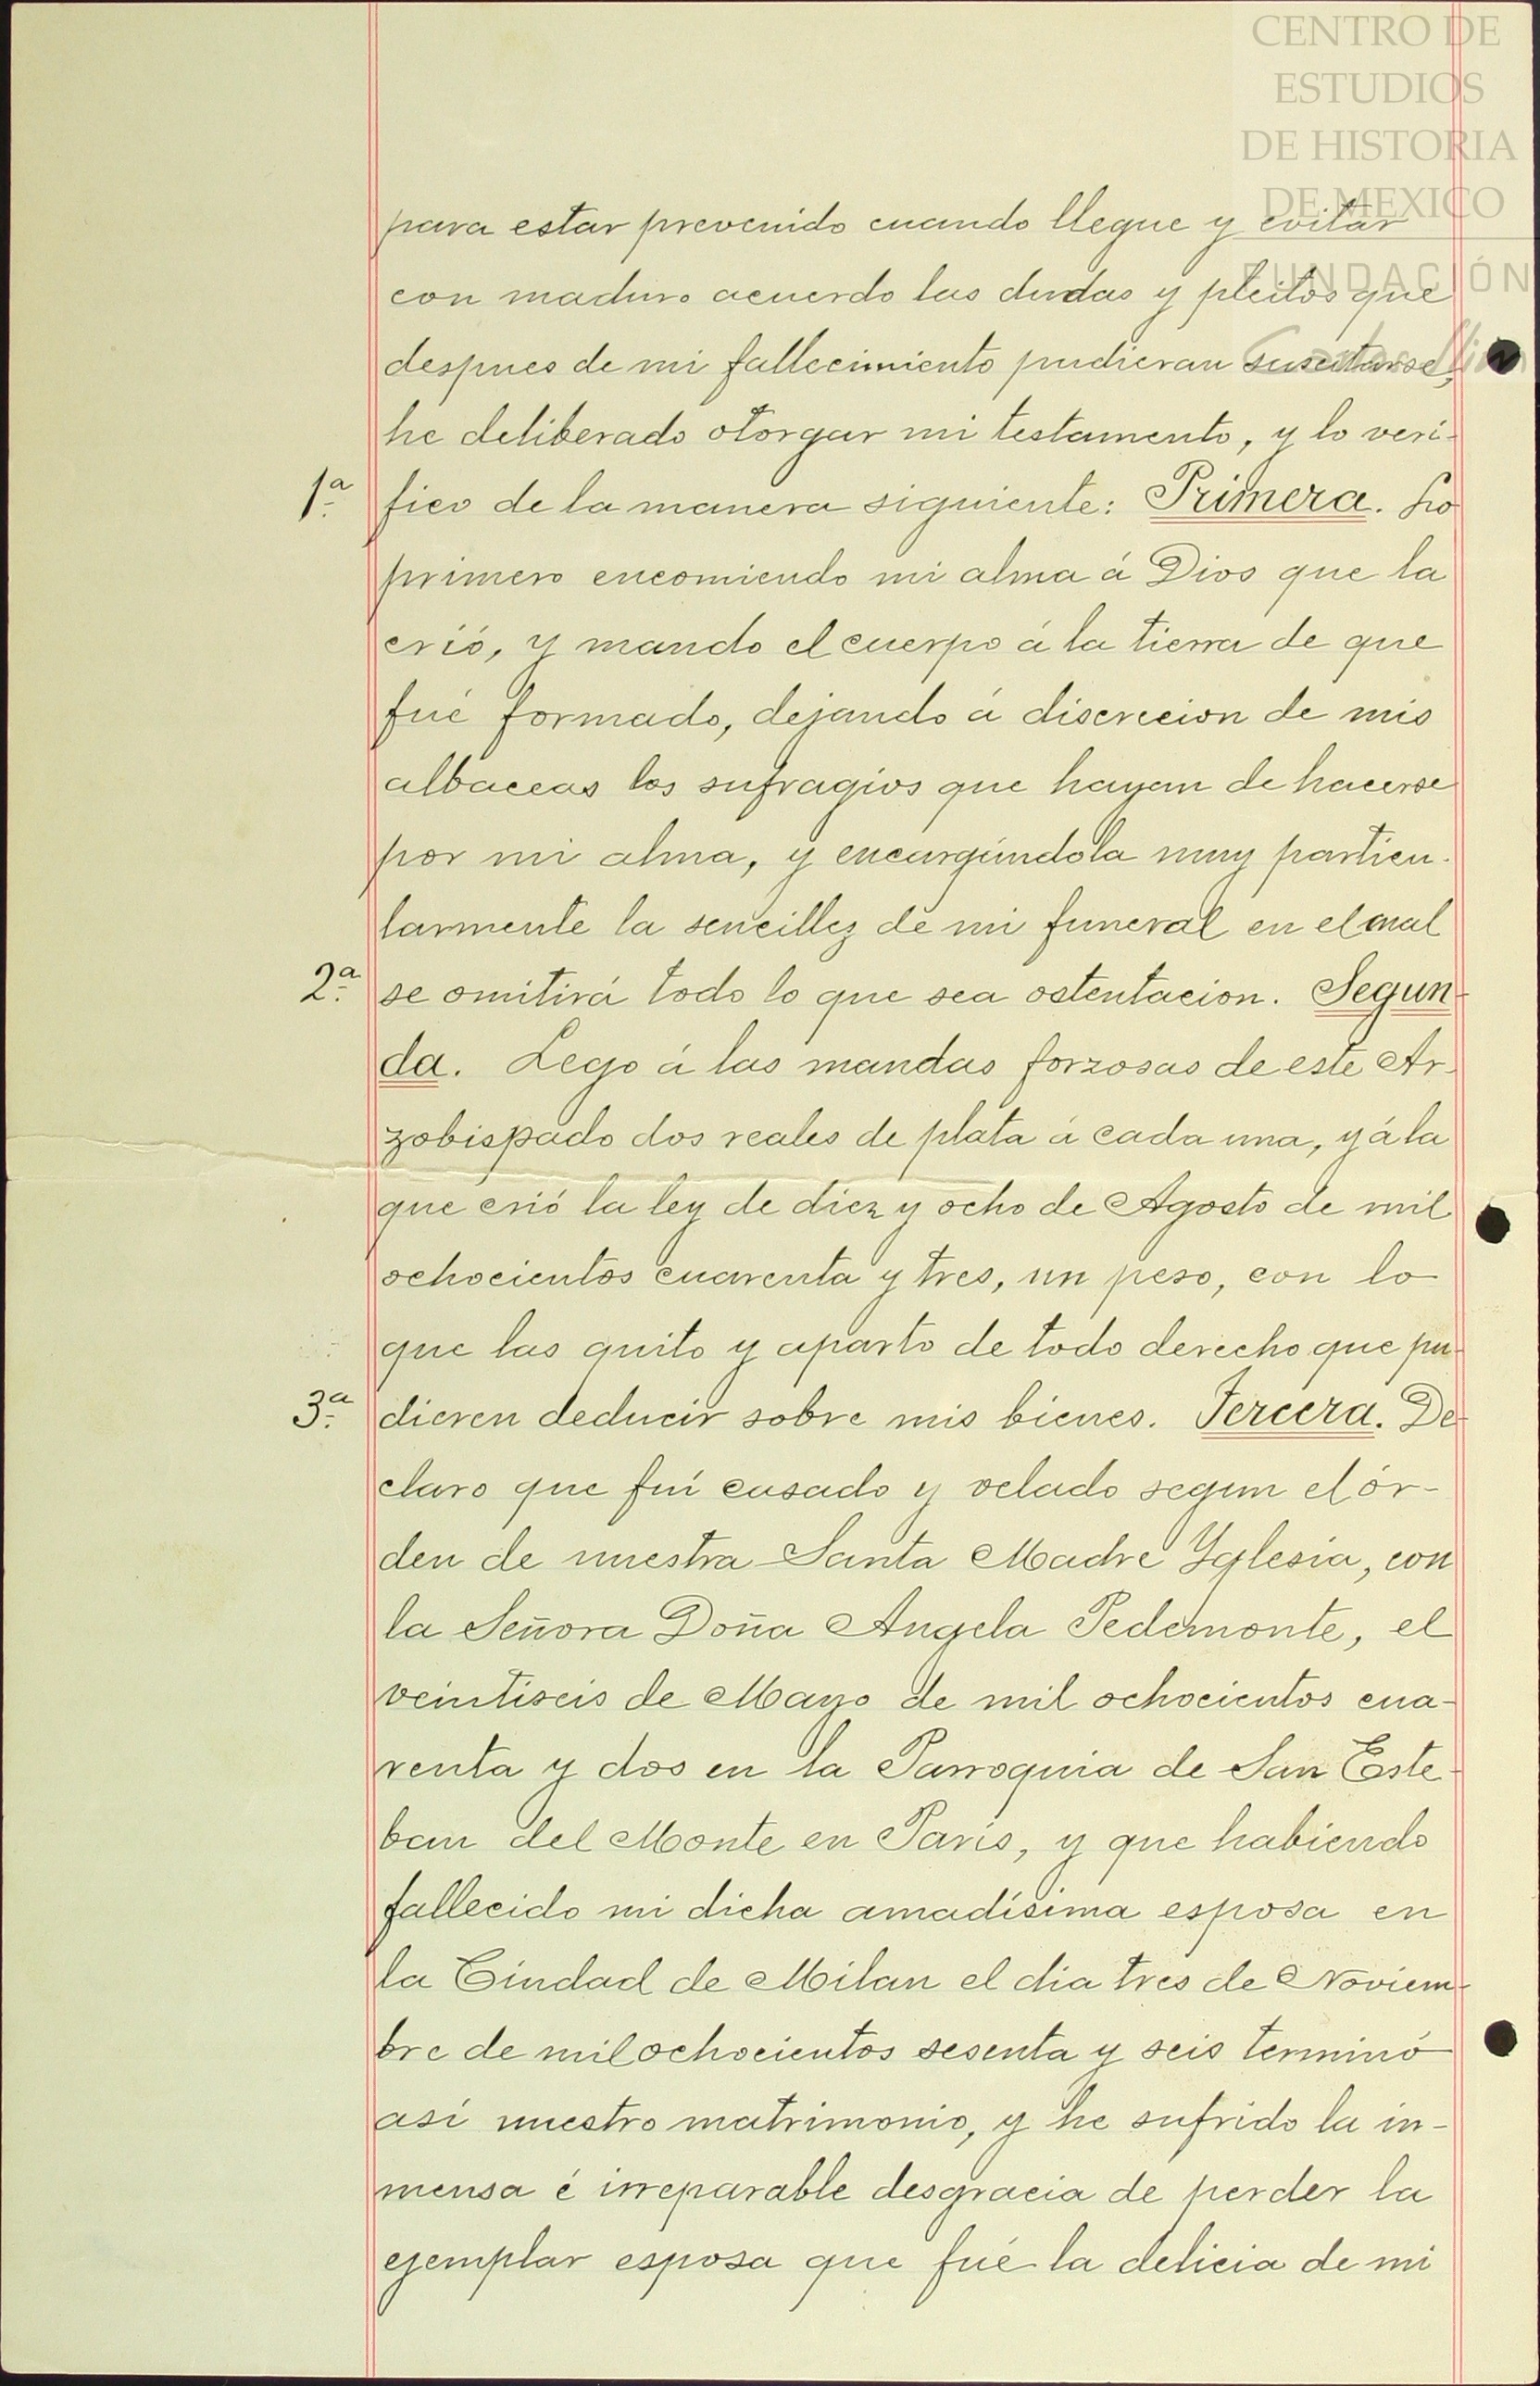 CENTRO DE
ESTUDIOS
DE HISTORIA
DE MEXICO
FUNDACIÓN
Carlos Slim
para estar prevenido cuando llegue y evitar
con maduro acuerdo las dudas y pleitos que
despues de mi fallecimiento pudieran suscitarse,
he deliberado otorgar mi testamento, y lo veri-
1ª fico de la manera siguiente: Primera. Lo
primero encomiendo mi alma á Dios que la
crió, y mando el cuerpo á la tierra de que
fué formado, dejando á discrecion de mis
albaceas los sufragios que hayan de hacerse
por mi alma, y encargándola muy particu-
larmente la sencillez de mi funeral en el cual
2ª se omitirá todo lo que sea ostentacion. Segun-
da. Lego á las mandas forzosas de este Ar-
zobispado dos reales de plata á cada una, y á la
que crió la ley de diez y ocho de Agosto de mil
ochocientos cuarenta y tres, un peso, con lo
que las quito y aparto de todo derecho que pu-
3ª dieren deducir sobre mis bienes. Tercera. De-
claro que fuí casado y velado segun el ór-
den de nuestra Santa Madre Yglesia, con
la Señora Doña Angela Pedemonte, el
veintiseis de Mayo de mil ochocientos cua-
renta y dos en la Parroquia de San Este-
ban del Monte en Paris, y que habiendo
fallecido mi dicha amadísima esposa en
la Ciudad de Milan el dia tres de Noviem-
bre de mil ochocientos sesenta y seis terminó
así nuestro matrimonio, y he sufrido la in-
mensa é irreparable desgracia de perder la
ejemplar esposa que fué la delicia de mi